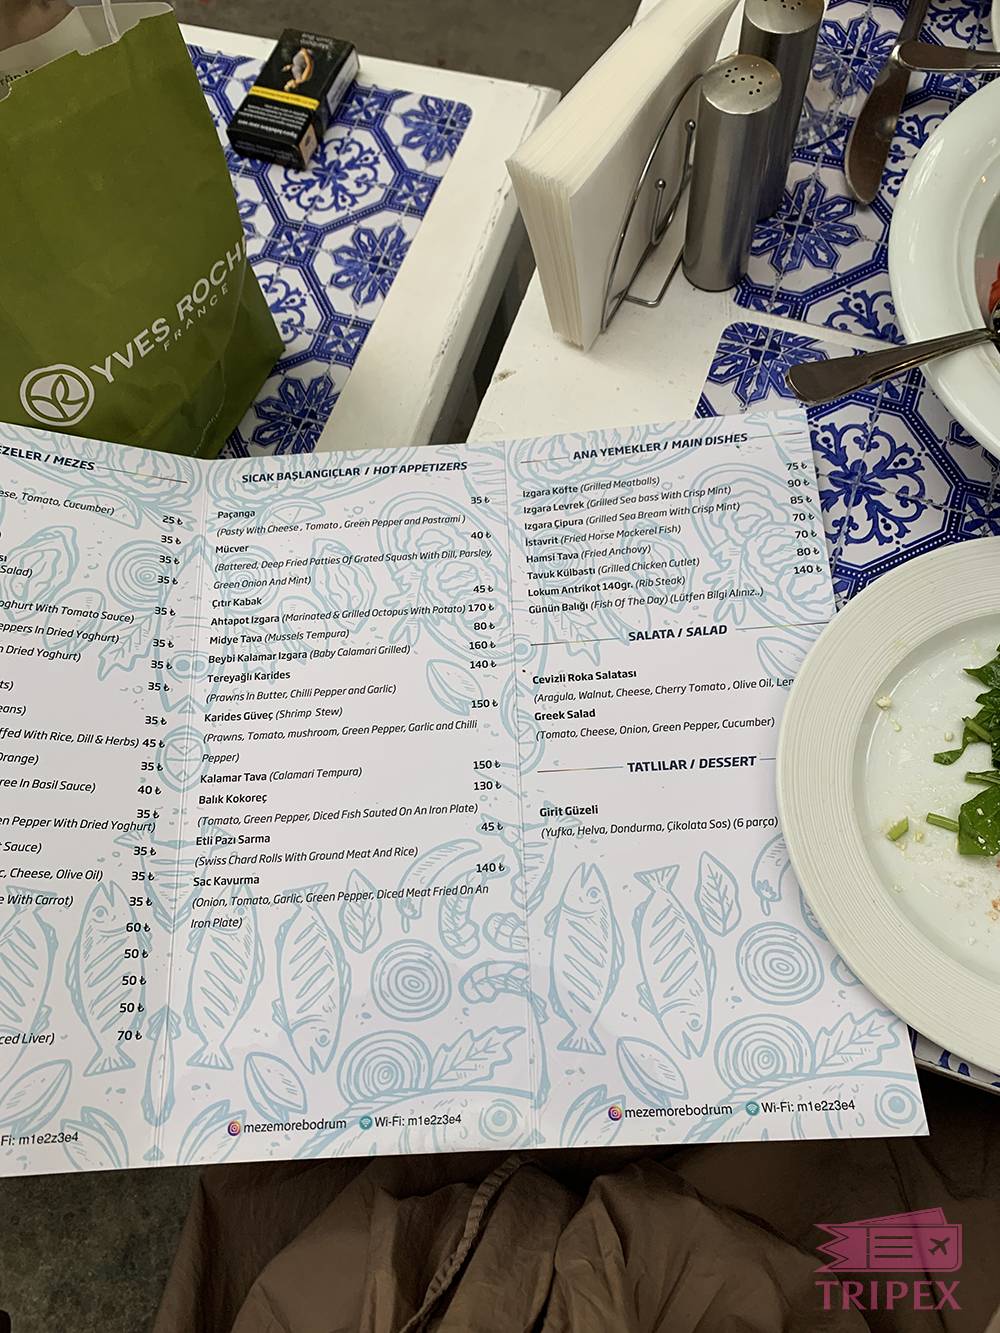 YVES ROCH
FRANCE
EZELER / MEZES
ese, Tomato, Cucumber)
25 ₺
35 ₺
35 ₺
Salad)
35 ₺
oghurt With Tomato Sauce)
35 ₺
eppers In Dried Yoghurt)
35 ₺
n Dried Yoghurt)
35 ₺
ts)
35 ₺
eans)
35 ₺
ffed With Rice, Dill & Herbs) 45 ₺
Orange)
35 ₺
ree In Basil Sauce)
40 ₺
35 ₺
en Pepper With Dried Yoghurt)
t Sauce)
35 ₺
c, Cheese, Olive Oil)
35 ₺
e With Carrot)
35 ₺
60 ₺
50 ₺
50 ₺
50 ₺
ced Liver)
70 ₺
Fi: m1e2z3e4
SICAK BAŞLANGIÇLAR / HOT APPETIZERS
Paçanga
35 ₺
(Pasty With Cheese , Tomato , Green Pepper and Pastrami )
Mücver
40 ₺
(Battered, Deep Fried Patties Of Grated Squash With Dill, Parsley,
Green Onion And Mint)
Çıtır Kabak
45 ₺
Ahtapot Izgara (Marinated & Grilled Octopus With Potato) 170 ₺
Midye Tava (Mussels Tempura)
80 ₺
Beybi Kalamar Izgara (Baby Calamari Grilled)
160 ₺
Tereyağlı Karides
140 ₺
(Prawns In Butter, Chilli Pepper and Garlic)
Karides Güveç (Shrimp Stew)
150 ₺
(Prawns, Tomato, mushroom, Green Pepper, Garlic and Chilli
Pepper)
Kalamar Tava (Calamari Tempura)
150 ₺
Balık Kokoreç
130 ₺
(Tomato, Green Pepper, Diced Fısh Sauted On An Iron Plate)
Etli Pazı Sarma
45 ₺
(Swiss Chard Rolls With Ground Meat And Rice)
Sac Kavurma
140 ₺
(Onion, Tomato, Garlic, Green Pepper, Diced Meat Fried On An
Iron Plate)
mezemorebodrum Wi-Fi: m1e2z3e4
ANA YEMEKLER / MAIN DISHES
Izgara Köfte (Grilled Meatballs)
75 ₺
Izgara Levrek (Grilled Sea bass With Crisp Mint)
90 ₺
Izgara Çipura (Grilled Sea Bream With Crisp Mint)
85 ₺
İstavrit (Fried Horse Mackerel Fish)
70 ₺
Hamsi Tava (Fried Anchovy)
70 ₺
Tavuk Külbastı (Grilled Chicken Cutlet)
80 ₺
Lokum Antrikot 140gr. (Rib Steak)
140 ₺
Günün Balığı (Fish Of The Day) (Lütfen Bilgi Alınız..)
SALATA / SALAD
Cevizli Roka Salatası
(Aragula, Walnut, Cheese, Cherry Tomato , Olive Oil, Len
Greek Salad
(Tomato, Cheese, Onion, Green Pepper, Cucumber)
TATLILAR / DESSERT
Girit Güzeli
(Yufka, Helva, Dondurma, Çikolata Sos) (6 parça)
mezemorebodrum Wi-Fi: m1e2z3e4
TRIPEX